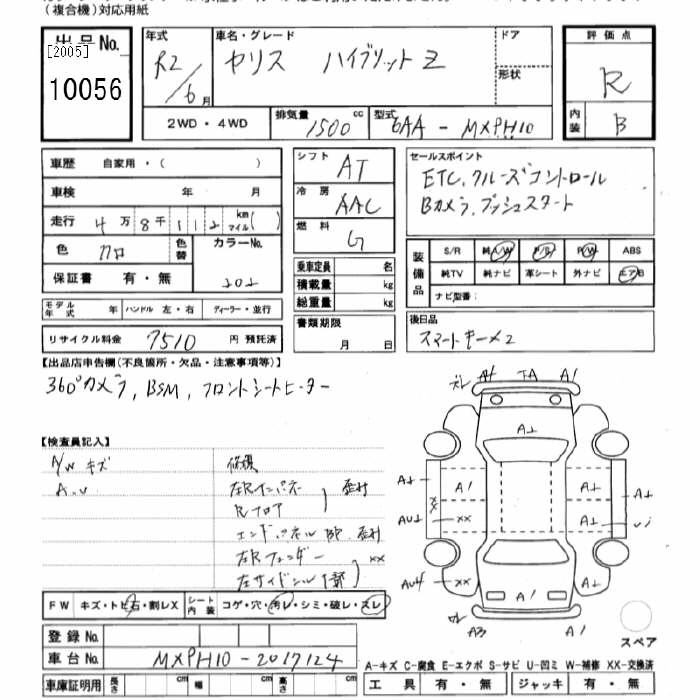 （複合機）対応用紙
出品No.
[2005]
10056
年式
R2/6月
車名・グレード
ヤリス ハイブリット Z
ドア
形状
評価点
R
内装
B
2WD・4WD
排気量 1500 cc
型式 6AA - MXPH10
車歴 自家用・（ ）
車検 年 月
走行 4万8千112 km マイル( )
色 クロ
色替
カラーNo. 202
保証書 有・無
シフト AT
冷房 AAC
燃料 G
乗車定員 名
積載量 kg
総重量 kg
セールスポイント
ETC, クルーズコントロール
Bカメラ, プッシュスタート
装備品
S/R 純A/W P/S P/W ABS
純TV 純ナビ 革シート 外ナビ エアB
ナビ型番：
モデル年式 年 ハンドル 左・右 ディーラー・並行
リサイクル料金 7510 円 預託済
書類期限
月 日
後日品
スマートキー×2
【出品店申告欄（不良箇所・欠品・注意事項等）】
360°カメラ, BSM, フロントシートヒーター
【検査員記入】
A/W キズ
修復
左Rインパネ
Rフロア
エンドパネル
左Rフェンダー ××
左サイドシル
A1 TA A1
A1
A1
××
××
A1
FW キズ・トビ石・割レX
シート内装 コゲ・穴・汚レ・シミ・破レ・スレ
登録No.
車台No. MXPH10-2017124
スペア
A-キズ C-腐食 E-エクボ S-サビ U-凹ミ W-補修 XX-交換済
車庫証明用 長さ cm 幅 cm 高さ cm
工具 有・無 ジャッキ 有・無